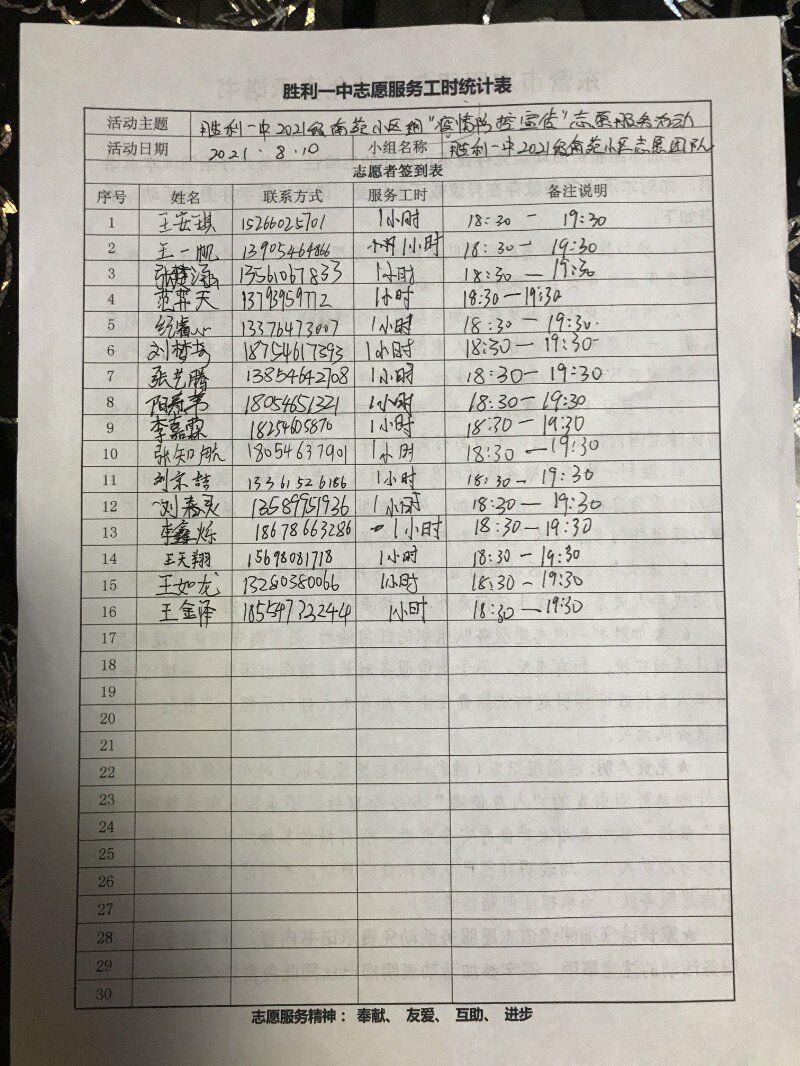 胜利一中志愿服务工时统计表
活动主题 胜利一中2021级南苑小区组"疫情防控宣传"志愿服务活动
活动日期 2021.8.10 小组名称 胜利一中2021级南苑小区志愿团队
志愿者签到表
序号 姓名 联系方式 服务工时 备注说明
1 王安琪 15266025701 1小时 18:30一 19:30
2 王一帆 13905464866 1小时 18:30一 19:30
3 张梦涵 13561067833 1小时 18:30 — 19:30
4 范弈天 13793959772 1小时 18:30—19:30
5 13376473007 1小时 18:30 — 19:30
6 刘梦 18754617393 1小时 18:30— 19:30
7 张艺腾 13854642708 1小时 18:30— 19:30
8 18054651321 1小时 18:30 — 19:30
9 李嘉霖 18254605870 1小时 18:30 — 19:30
10 张知航 18054637901 1小时 18:30 —19:30
11 刘宗喆 13361526186 1小时 18:30 — 19:30
12 刘春灵 13589951936 1小时 18:30— 19:30
13 李鑫烁 18678663286 1小时 18:30—19:30
14 王天翔 15698081718 1小时 18:30 — 19:30
15 王如龙 13280380066 1小时 18:30 — 19:30
16 王金泽 18554733244 1小时 18:30 —19:30
17
18
19
20
21
22
23
24
25
26
27
28
29
30
志愿服务精神： 奉献、 友爱、 互助、 进步